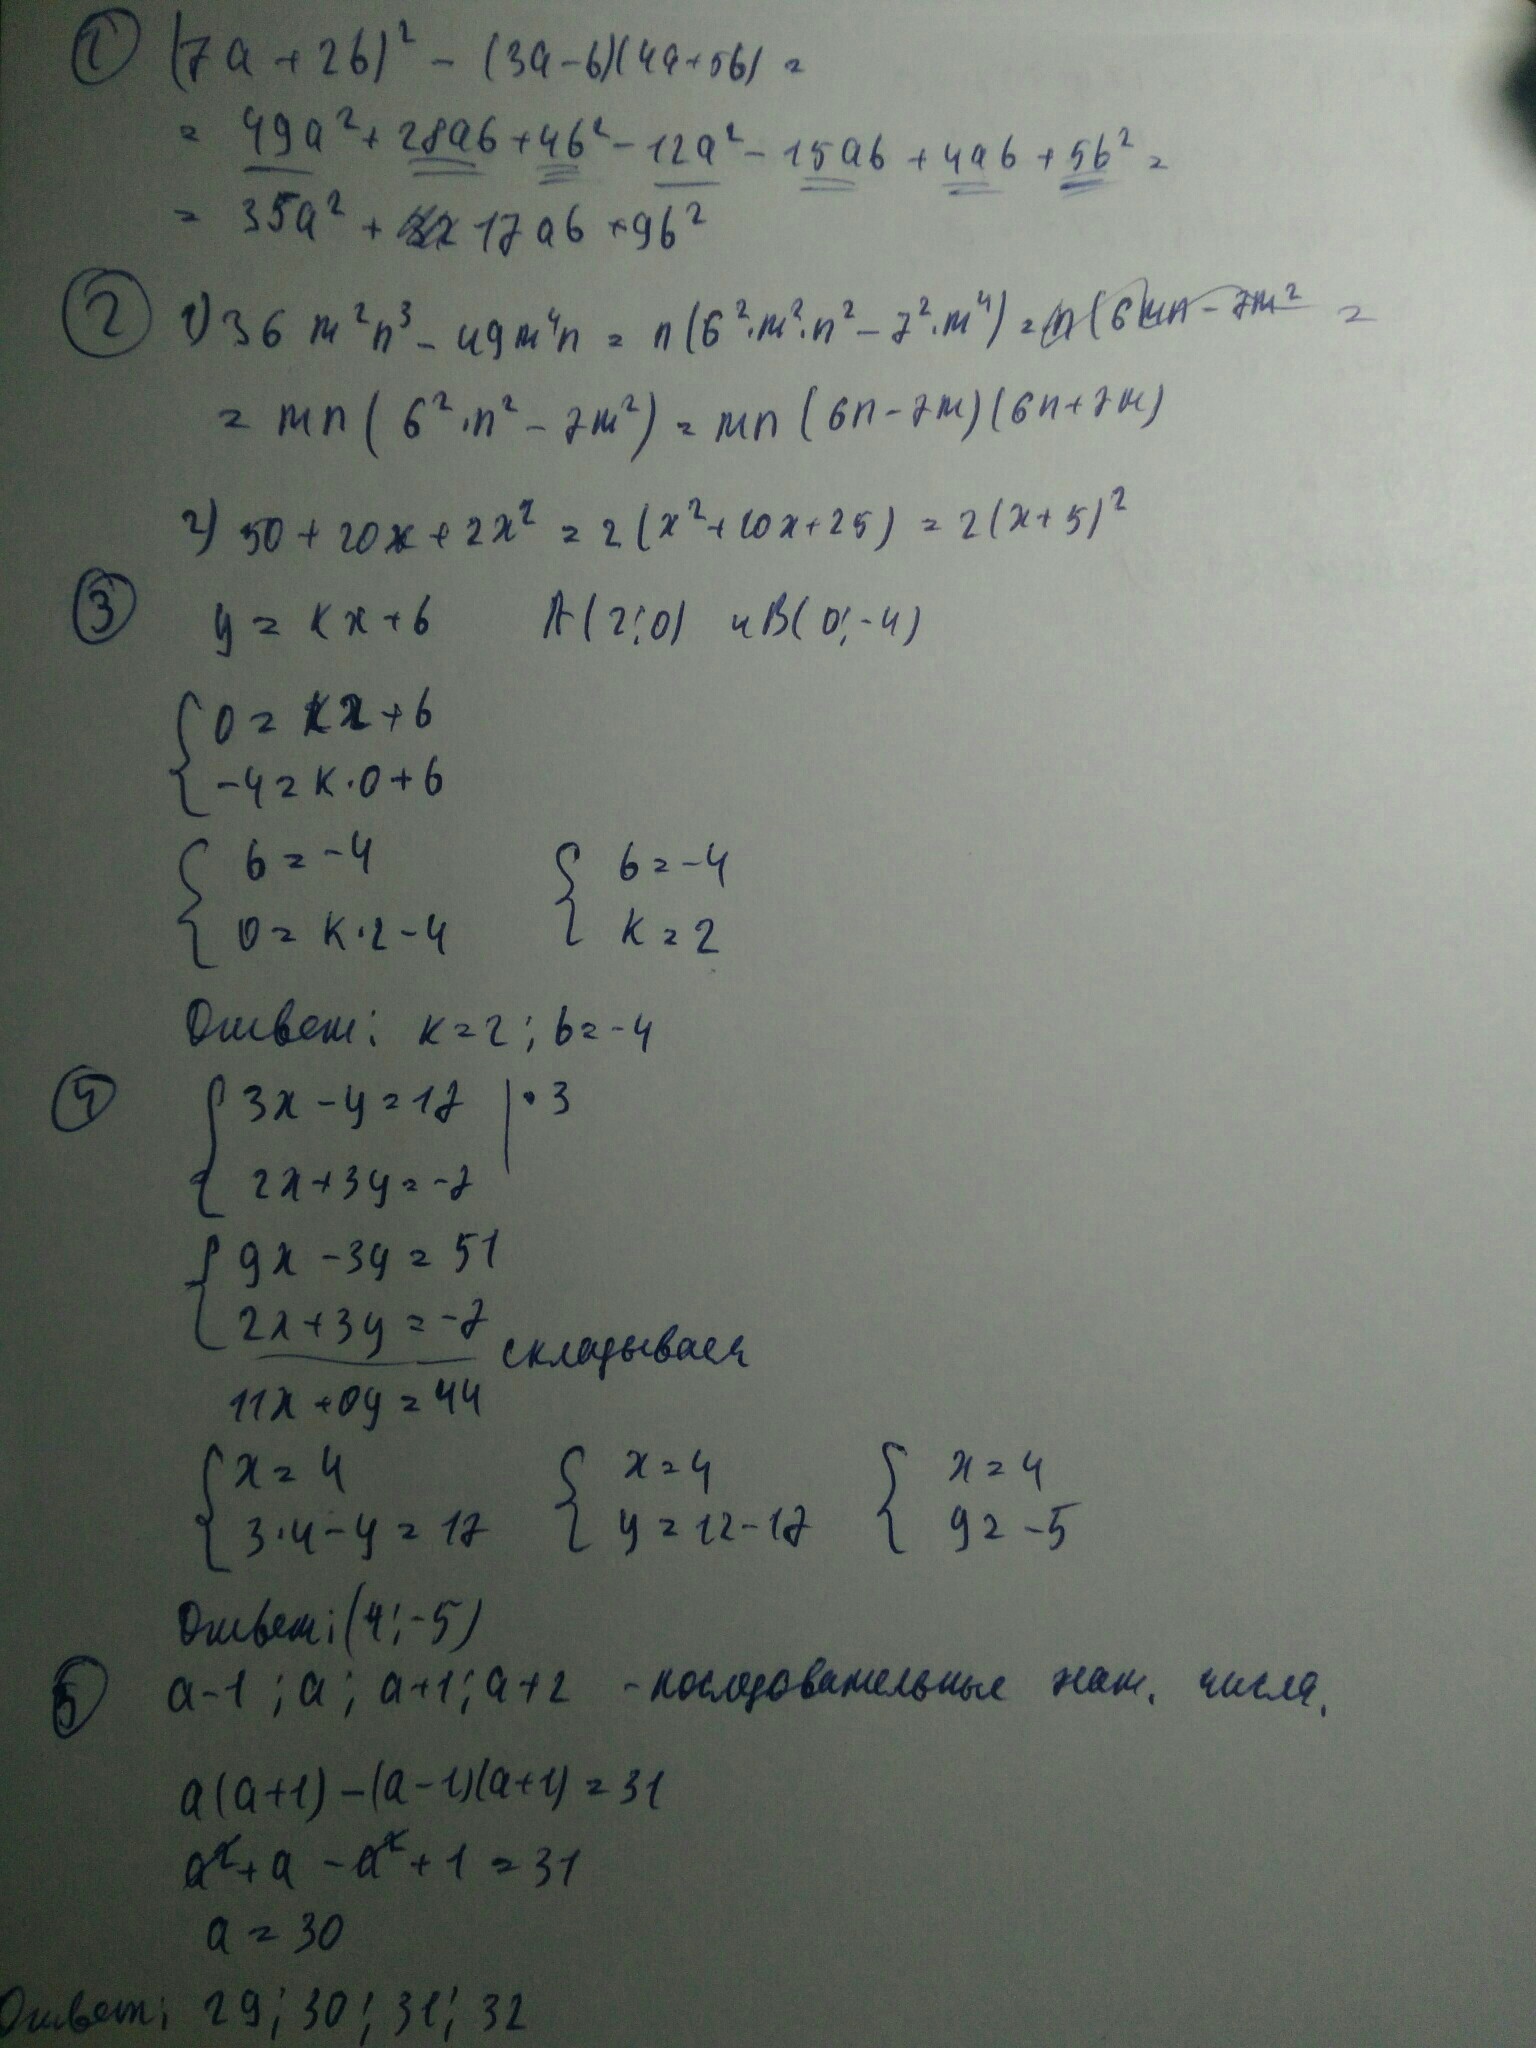 ① (7a + 2b)² - (3a-b)(4a+5b) =
= 49a² + 28ab + 4b² - 12a² - 15ab + 4ab + 5b² =
= 35a² + 17ab + 9b²
② 1) 36 m²n³ - 49m⁴n = n(6²·m²·n² - 7²·m⁴) = n(6mn - 7m² =
= mn(6²·n² - 7m²) = mn(6n-7m)(6n+7m)
2) 50 + 20x + 2x² = 2(x²+10x+25) = 2(x+5)²
③ y = kx+b A(2;0) и B(0;-4)
0 = kx+b
-4 = k·0+b
b = -4 b = -4
0 = k·2-4 k = 2
Ответ: k=2; b=-4
④ 3x - y = 17 | · 3
2x+3y = -7
9x - 3y = 51
2x+3y = -7 складываем
11x+0y = 44
x = 4 x = 4 x = 4
3·4 - y = 17 y = 12-17 y = -5
Ответ: (4;-5)
⑤ a-1; a; a+1; a+2 - последовательные нат. числа.
a(a+1) - (a-1)(a+1) = 31
a² + a - a² + 1 = 31
a = 30
Ответ: 29; 30; 31; 32